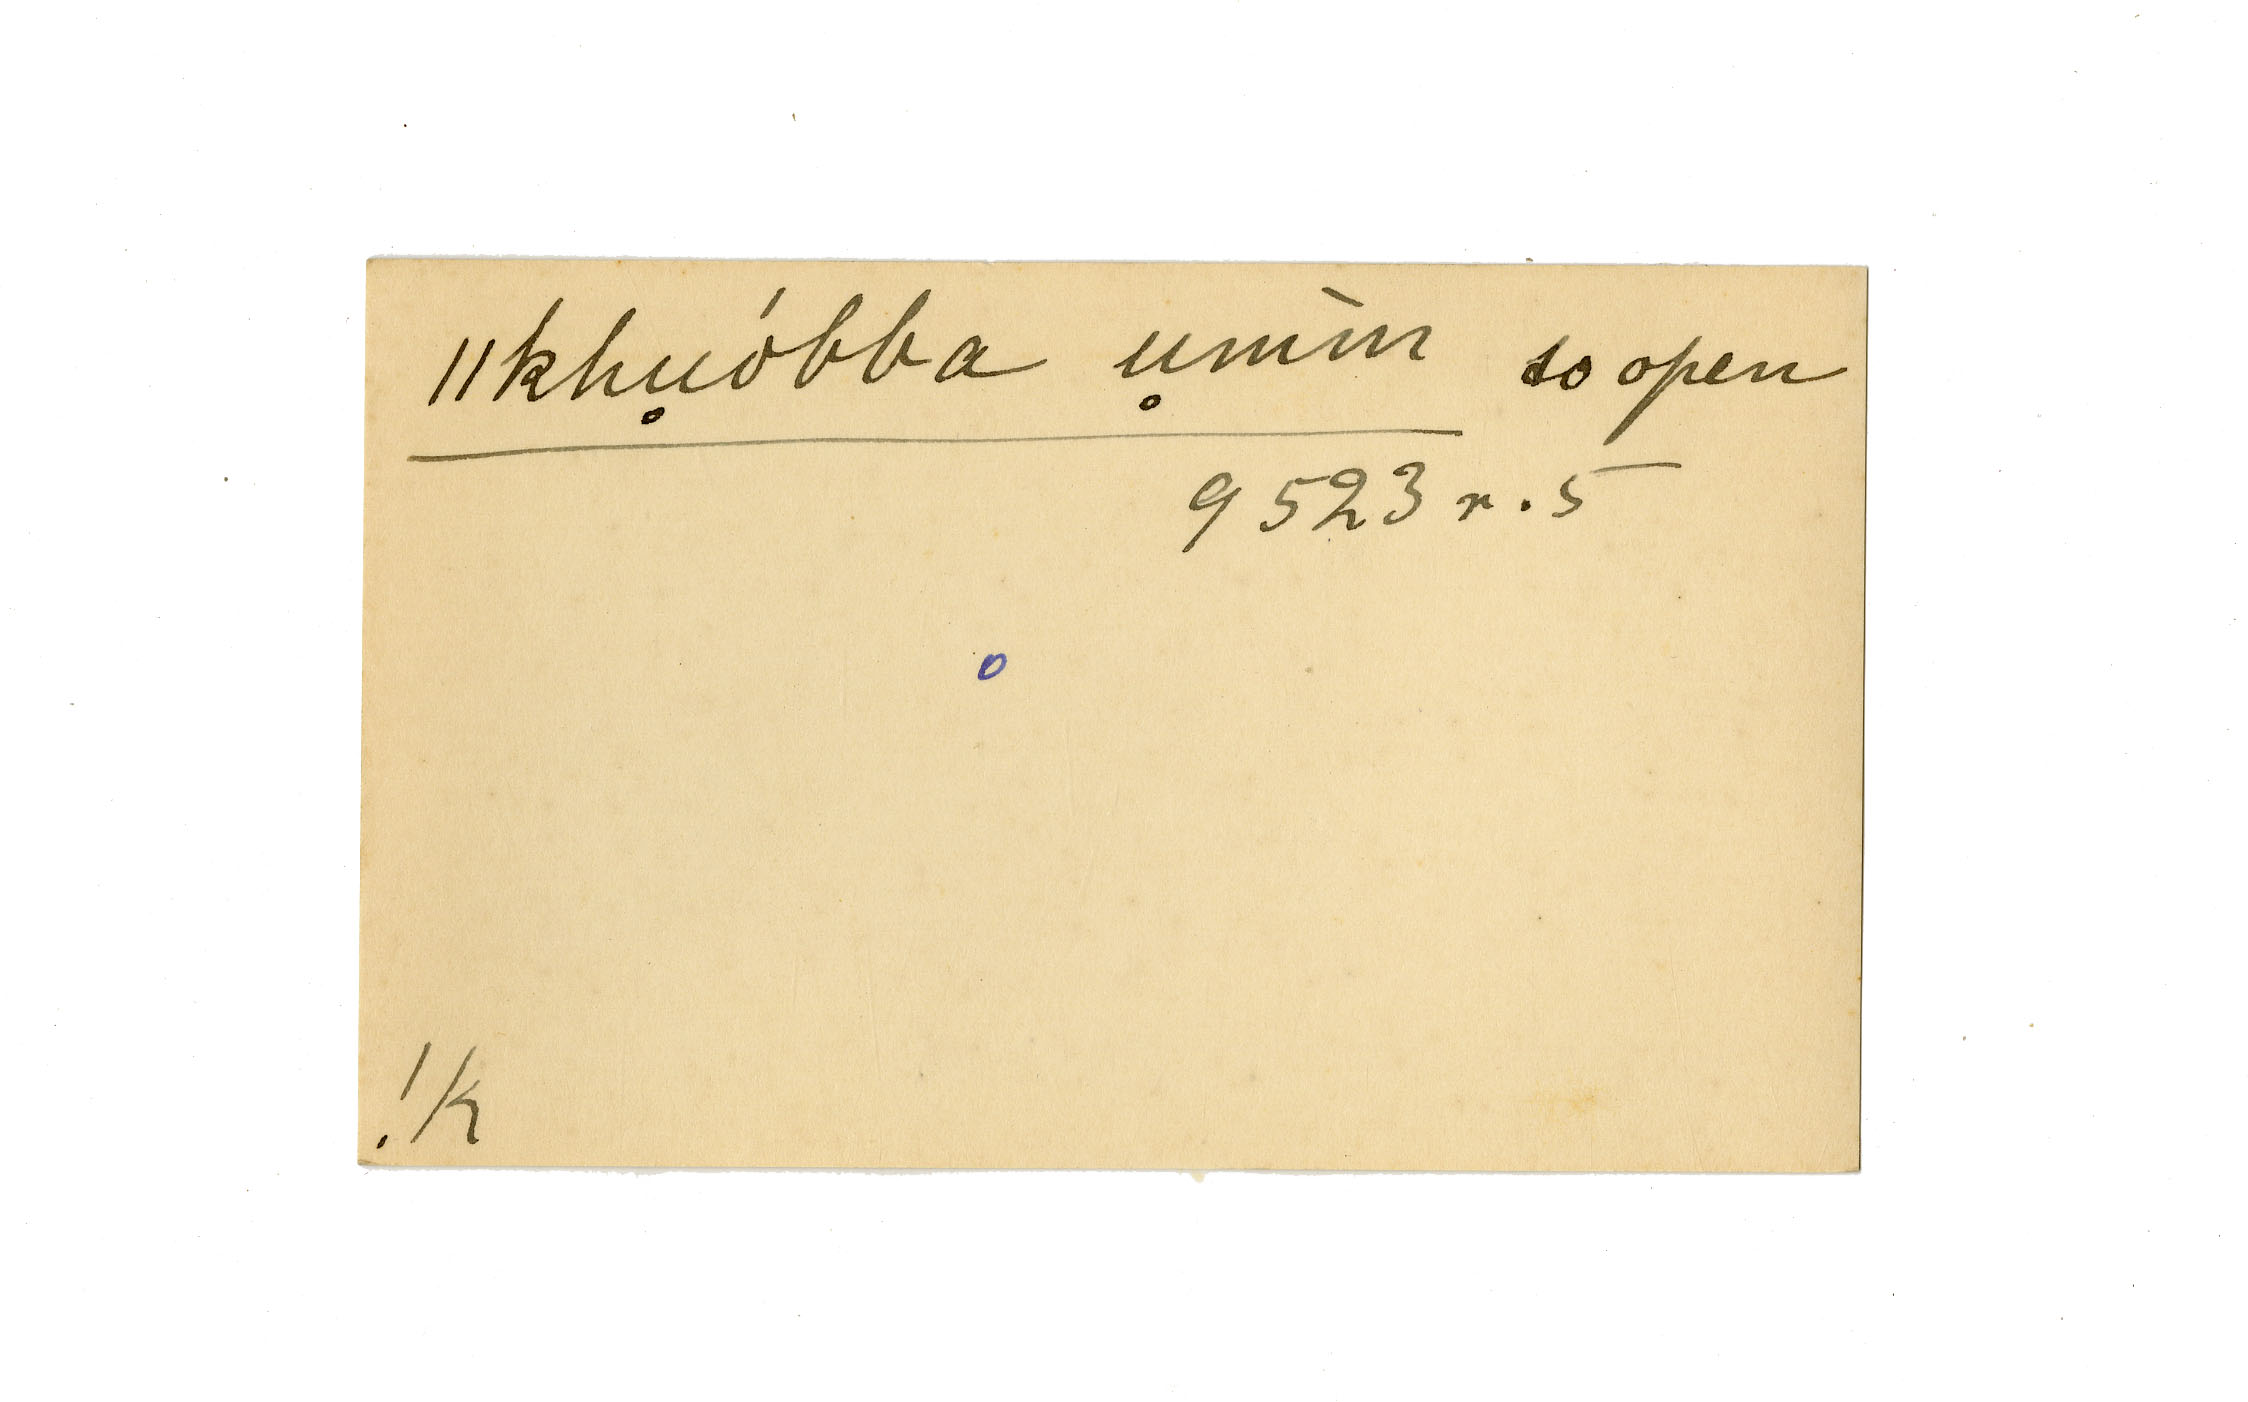 ǁkhu̥óbba u̥mìn to open
9523 r. 5
o
!K